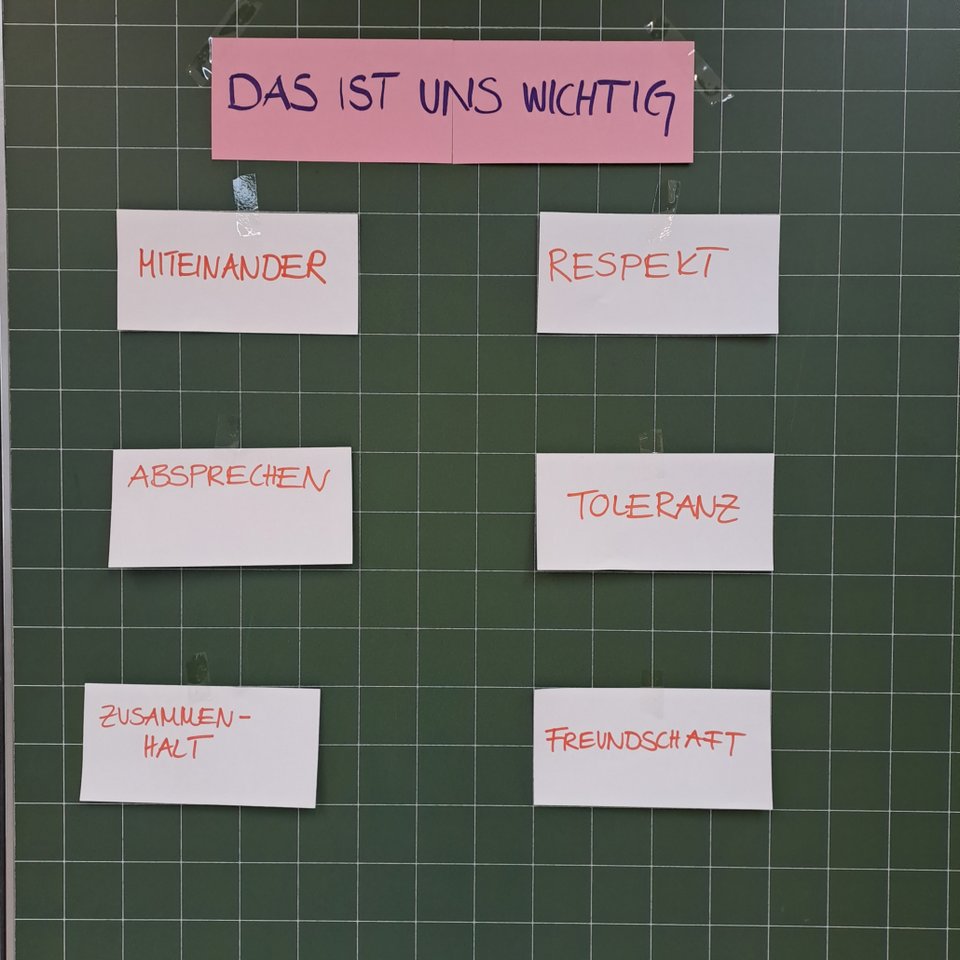 DAS IST UNS WICHTIG
MITEINANDER
RESPEKT
ABSPRECHEN
TOLERANZ
ZUSAMMEN-
HALT
FREUNDSCHAFT